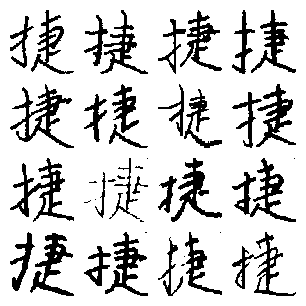 捷捷捷捷
捷捷捷捷
捷捷捷捷
捷捷捷捷